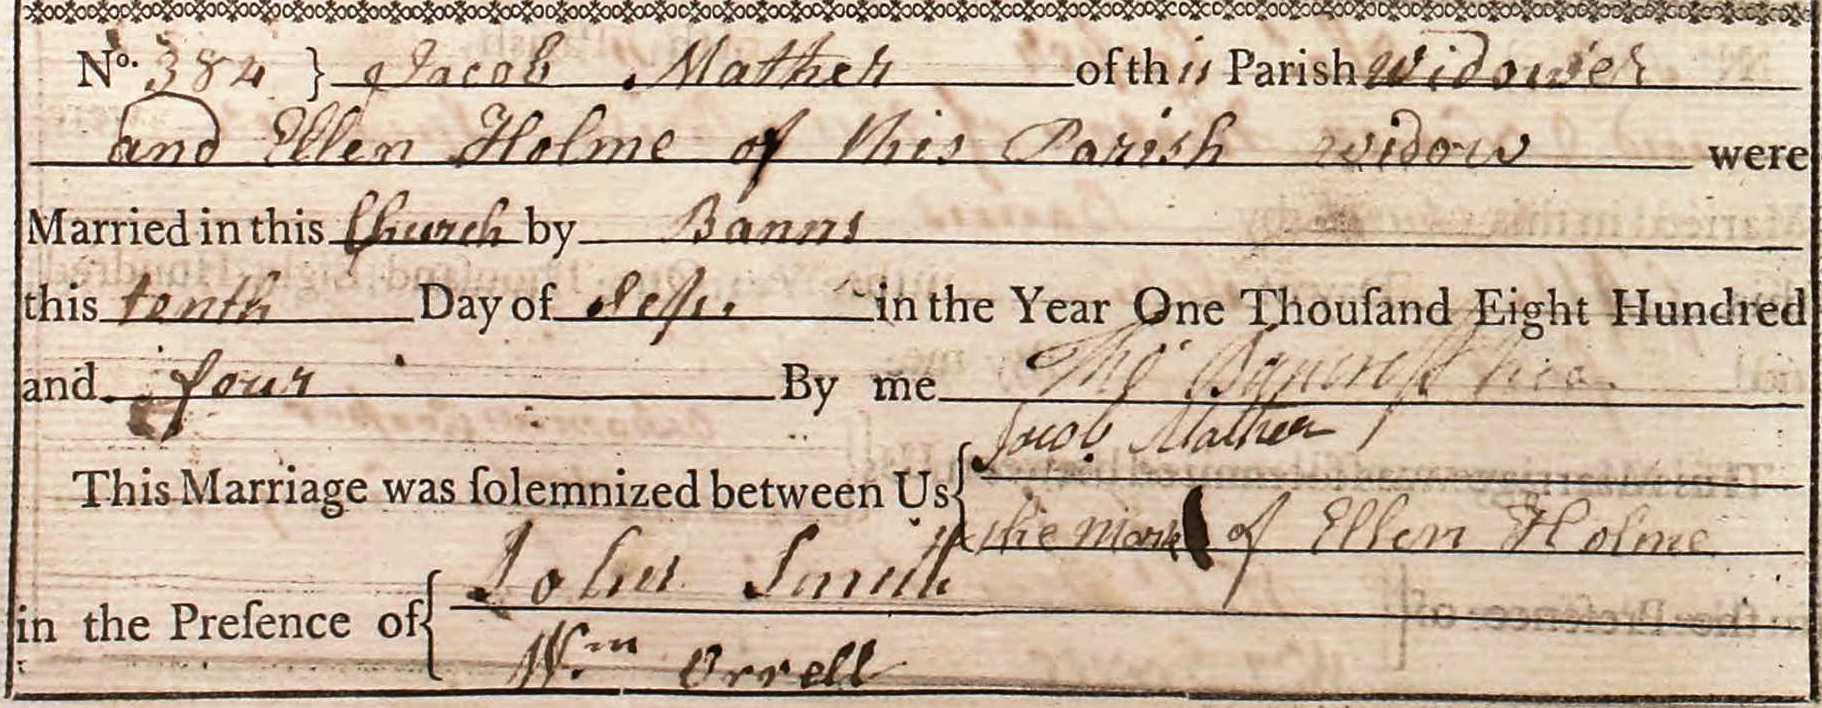 No. 384 } Jacob Mather of this Parish widower
and Ellen Holme of this Parish widow were
Married in this Church by Banns
this tenth Day of Sep. in the Year One Thouſand Eight Hundred
and four By me Tho Bancroft Vica.
This Marriage was ſolemnized between Us { Jacob Mather
the Mark of Ellen Holme
in the Preſence of { John Smith
Wm Orrell